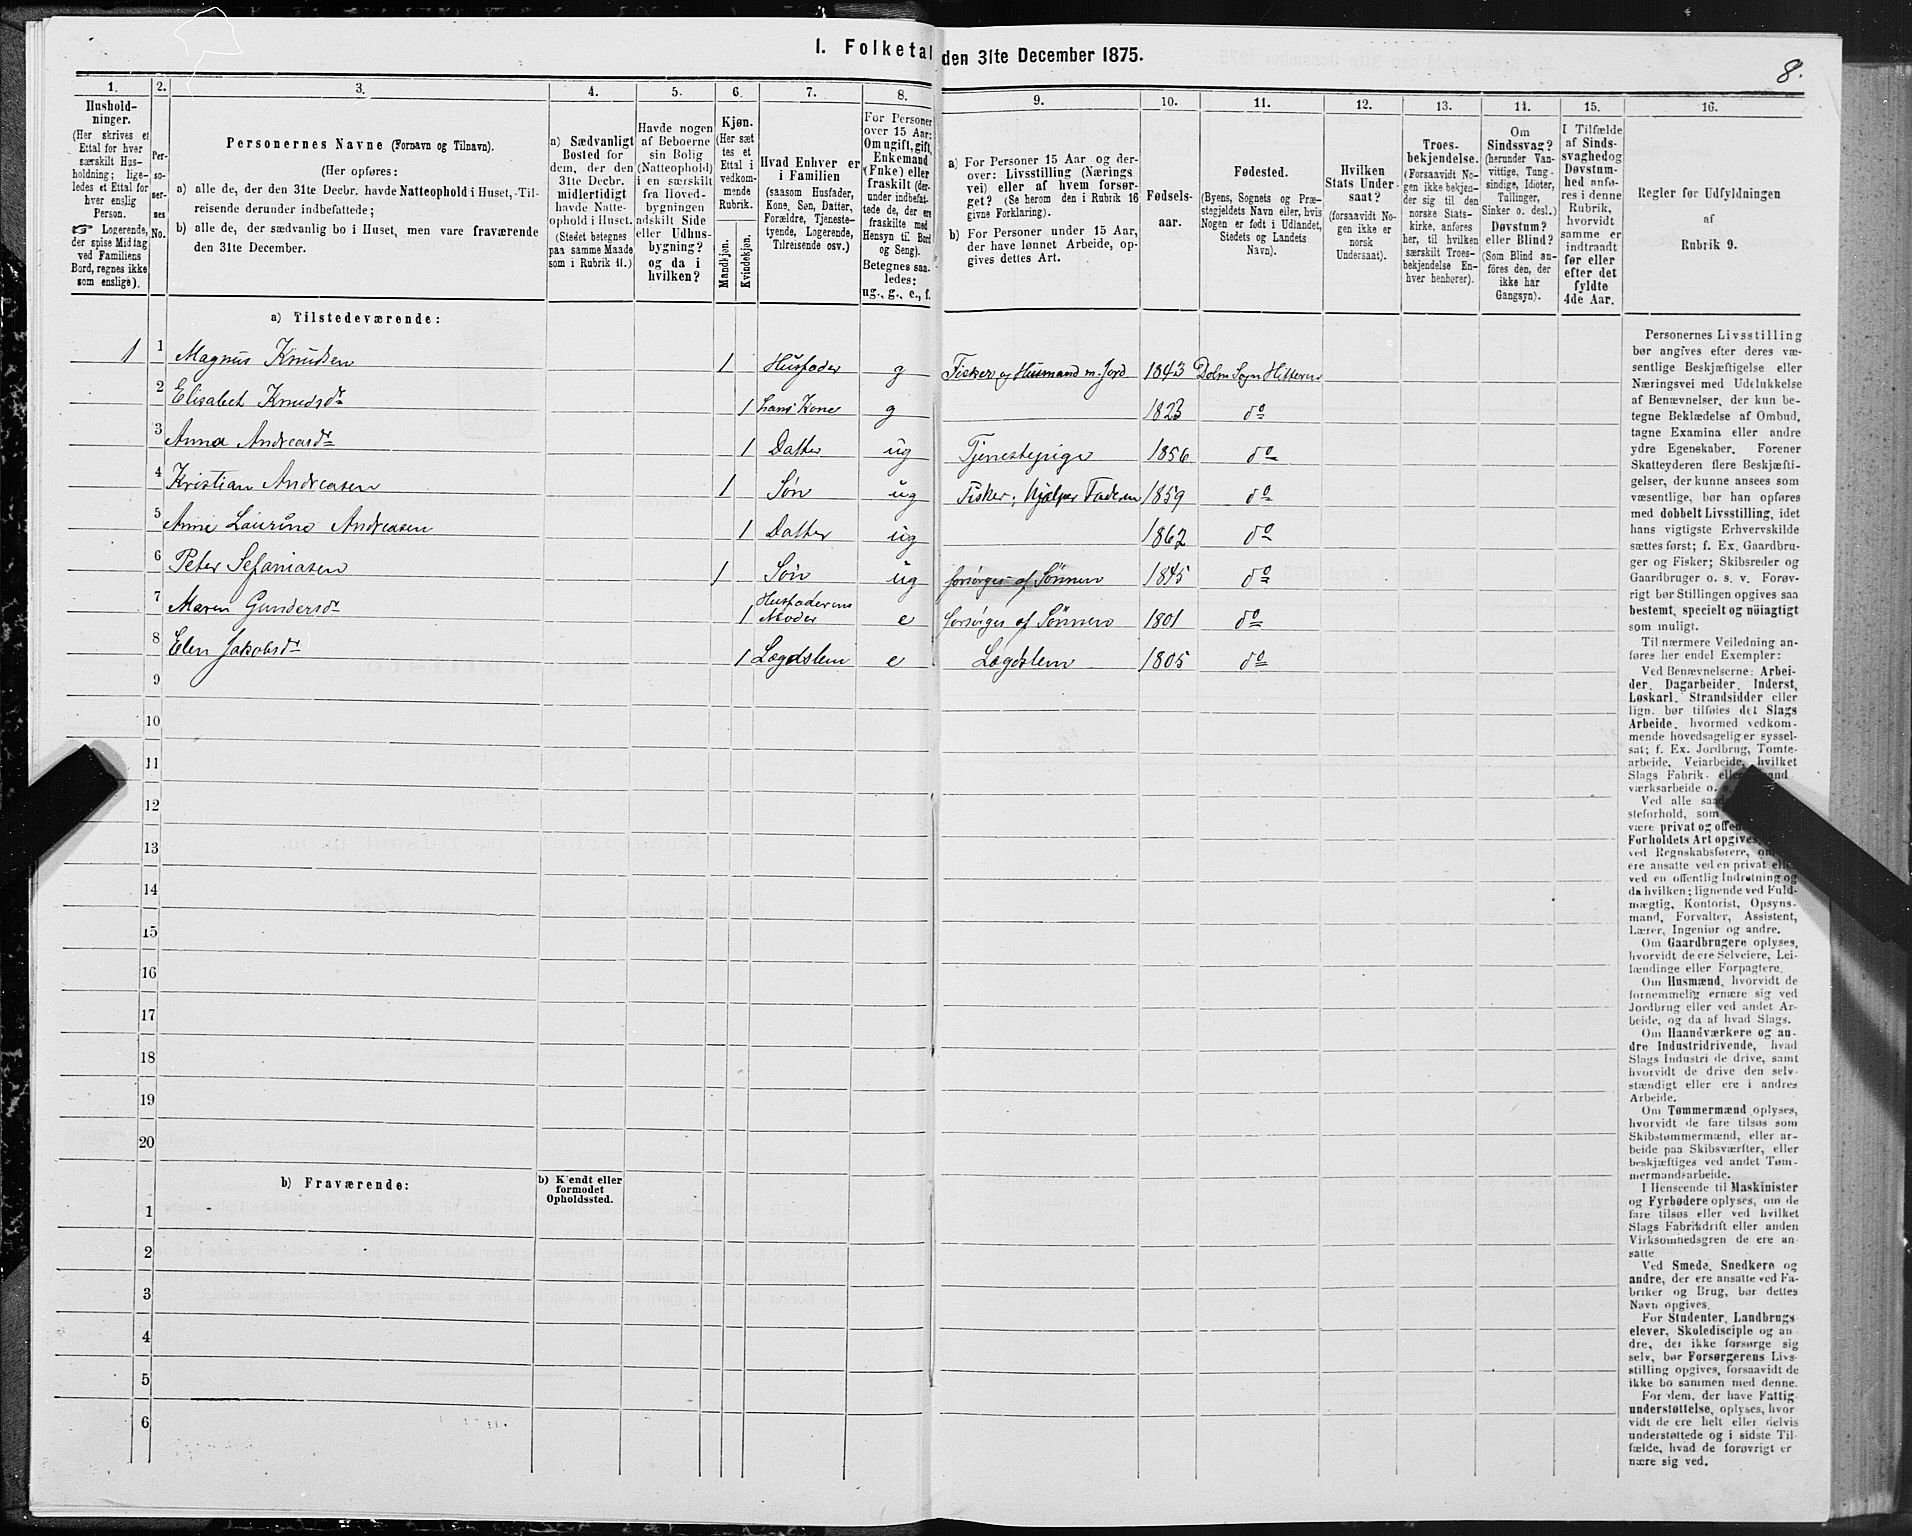 1. Folketal den 31te December 1875.
8.
1.
Hushold-
ninger.
(Her skrives et
Ettal for hver
særskilt Hus-
holdning; lige-
ledes et Ettal for
hver enslig
Person.
☞ Logerende,
der spise Middag
ved Familiens
Bord, regnes ikke
som enslige).
2.
Per-
so-
ner-
nes
No.
3.
Personernes Navne (Fornavn og Tilnavn).
(Her opføres:
a) alle de, der den 31te Decbr. havde Natteophold i Huset, Til-
reisende derunder indbefattede;
b) alle de, der sædvanlig bo i Huset, men vare fraværende
den 31te December.
4.
a) Sædvanligt
Bosted for
dem, der den
31te Decbr.
midlertidigt
havde Natte-
ophold i Huset.
(Stedet betegnes
paa samme Maade
som i Rubrik 11.)
5.
Havde nogen
af Beboerne
sin Bolig
(Natteophold)
i en særskilt
fra Hoved-
bygningen
adskilt Side
eller Udhus-
bygning?
og da i
hvilken?
6.
Kjøn.
(Her sæt-
tes et
Ettal i
vedkom-
mende
Rubrik.
Mandkjøn.
Kvindekjøn.
7.
Hvad Enhver er
i Familien
(saasom Husfader,
Kone, Søn, Datter,
Forældre, Tjeneste-
tyende, Logerende,
Tilreisende osv.)
8.
For Personer
over 15 Aar:
Om ugift, gift,
Enkemand
(Enke) eller
fraskilt (der-
under indbefat-
tede de, der ere
fraskilte med
Hensyn til Bord
og Seng).
Betegnes saa-
ledes:
ug., g., e., f.
9.
a) For Personer 15 Aar og der-
over: Livsstilling (Nærings
vei) eller af hvem forsør-
get? (Se herom den i Rubrik 16
givne Forklaring).
b) For Personer under 15 Aar,
der have lønnet Arbeide, op-
gives dettes Art.
10.
Fødsels-
aar.
11.
Fødested.
(Byens, Sognets og Præ-
stegjeldets Navn eller, hvis
Nogen er født i Udlandet,
Stedets og Landets
Navn).
12.
Hvilken
Stats Under-
saat?
(forsaavidt No-
gen ikke er
norsk
Undersaat).
13.
Troes-
bekjendelse.
(Forsaavidt No-
gen ikke bekjen-
der sig til den
norske Stats-
kirke, anføres
her, til hvilken
særskilt Troes-
bekjendelse En-
hver henhører).
14.
Om
Sindssvag?
(herunder Van-
vittige, Tung-
sindige, Idioter,
Tullinger,
Sinker o. desl.)
Døvstum?
eller Blind?
(Som Blind an-
føres den, der
ikke har
Gangsyn).
15.
I Tilfælde
af Sinds-
svaghed og
Døvstum-
hed anfø-
res i denne
Rubrik,
hvorvidt
samme er
indtraadt
før eller
efter det
fyldte
4de Aar.
16.
Regler før Udfyldningen
af
Rubrik 9.
a) Tilstedeværende:
1 1 Magnus Knudsen 1 Husfader g Fisker og Husmand m. Jord 1843 Dolm Sogn Hitteren
2 Elisabet Knudsdr 1 hans Kone g 1823 do
3 Anna Andreasdr 1 Datter ug Tjenestepige 1856 do
4 Kristian Andreasen 1 Søn ug Fisker, hjælper Faderen 1859 do
5 Anne Laurine Andreasen 1 Datter ug 1862 do
6 Peter Sefaniasen 1 Søn ug forsørges af Sønnen 1845 do
7 Maren Gundersdr 1 Husfaderens Moder e forsørges af Sønnen 1801 do
8 Elen Jakobsdr 1 Lægdslem e Lægdslem 1805 do
9
10
11
12
13
14
15
16
17
18
19
20
b) Fraværende:
b) Kjendt eller
formodet
Opholdssted.
1
2
3
4
5
6
Personernes Livsstilling
bør angives efter deres væ-
sentlige Beskjæftigelse eller
Næringsvei med Udelukkelse
af Benævnelser, der kun be-
tegne Beklædelse af Ombud,
tagne Examina eller andre
ydre Egenskaber. Forener
Skatteyderen flere Beskjæfti-
gelser, der kunne ansees som
væsentlige, bør han opføres
med dobbelt Livsstilling, idet
hans vigtigste Erhvervskilde
sættes først; f. Ex. Gaardbru-
ger og Fisker; Skibsreder og
Gaardbruger o. s. v. Forøv-
rigt bør Stillingen opgives saa
bestemt, specielt og nöiagtigt
som muligt.
Til nærmere Veiledning an-
føres her endel Exempler:
Ved Benævnelserne: Arbei-
der, Dagarbeider, Inderst,
Løskarl, Strandsidder eller
lign. bør tilføies det Slags
Arbeide, hvormed vedkom-
mende hovedsagelig er syssel-
sat; f. Ex. Jordbrug, Tomte-
arbeide, Veiarbeide, hvilket
Slags Fabrik- eller
værksarbeide o.
Ved alle
steforhold, som
være privat og
Forholdets Art opgives,
ved Regnskabsførere,
ere ansatte ved en privat
ved en offentlig Indretning og
da hvilken; lignende ved Fuld-
mægtig, Kontorist, Opsyns-
mand, Forvalter, Assistent,
Lærer, Ingeniør og andre.
Om Gaardbrugere oplyses,
hvorvidt de ere Selveiere, Lei-
lændinge eller Forpagtere.
Om Husmænd, hvorvidt de
fornemmelig ernære sig ved
Jordbrug eller ved andet Ar-
beide, og da af hvad Slags.
Om Haandværkere og an-
dre Industridrivende, hvad
Slags Industri de drive, samt
hvorvidt de drive den selv-
stændigt eller ere i andres
Arbeide.
Om Tømmermænd oplyses,
hvorvidt de fare tilsøs som
Skibstømmermænd, eller ar-
beide paa Skibsværfter, eller
beskjæftiges ved andet Tøm-
mermandsarbeide.
I Henseende til Maskinister
og Fyrbødere oplyses, om de
fare tilsøs eller ved hvilket
Slags Fabrikdrift eller anden
Virksomhedsgren de ere an-
satte
Ved Smede, Snedkere og
andre, der ere ansatte ved Fa-
briker og Brug, bør dettes
Navn opgives.
For Studenter, Landbrugs
elever, Skoledisciple og an-
dre, der ikke forsørge sig
selv, bør Forsørgerens Livs-
stilling opgives, forsaavidt de
ikke bo sammen med denne.
For dem, der have Fattig
understøttelse, oplyses, hvor
vidt de ere helt eller delvis
understøttede og i sidste Til-
fælde, hvad de forøvrigt er
nære sig ved.